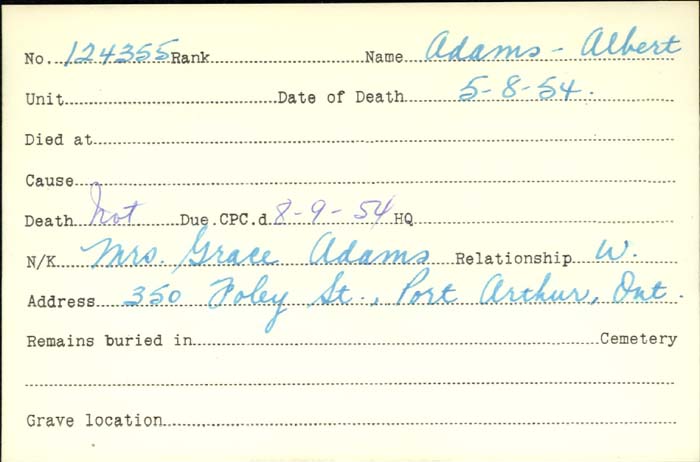 No. 124355 Rank Name Adams - Albert
Unit Date of Death 5-8-54.
Died at
Cause
Death Not Due CPC.d 8-9-54 HQ
N/K Mrs. Grace Adams Relationship W.
Address 350 Foley St., Port Arthur, Ont.
Remains buried in Cemetery
Grave location